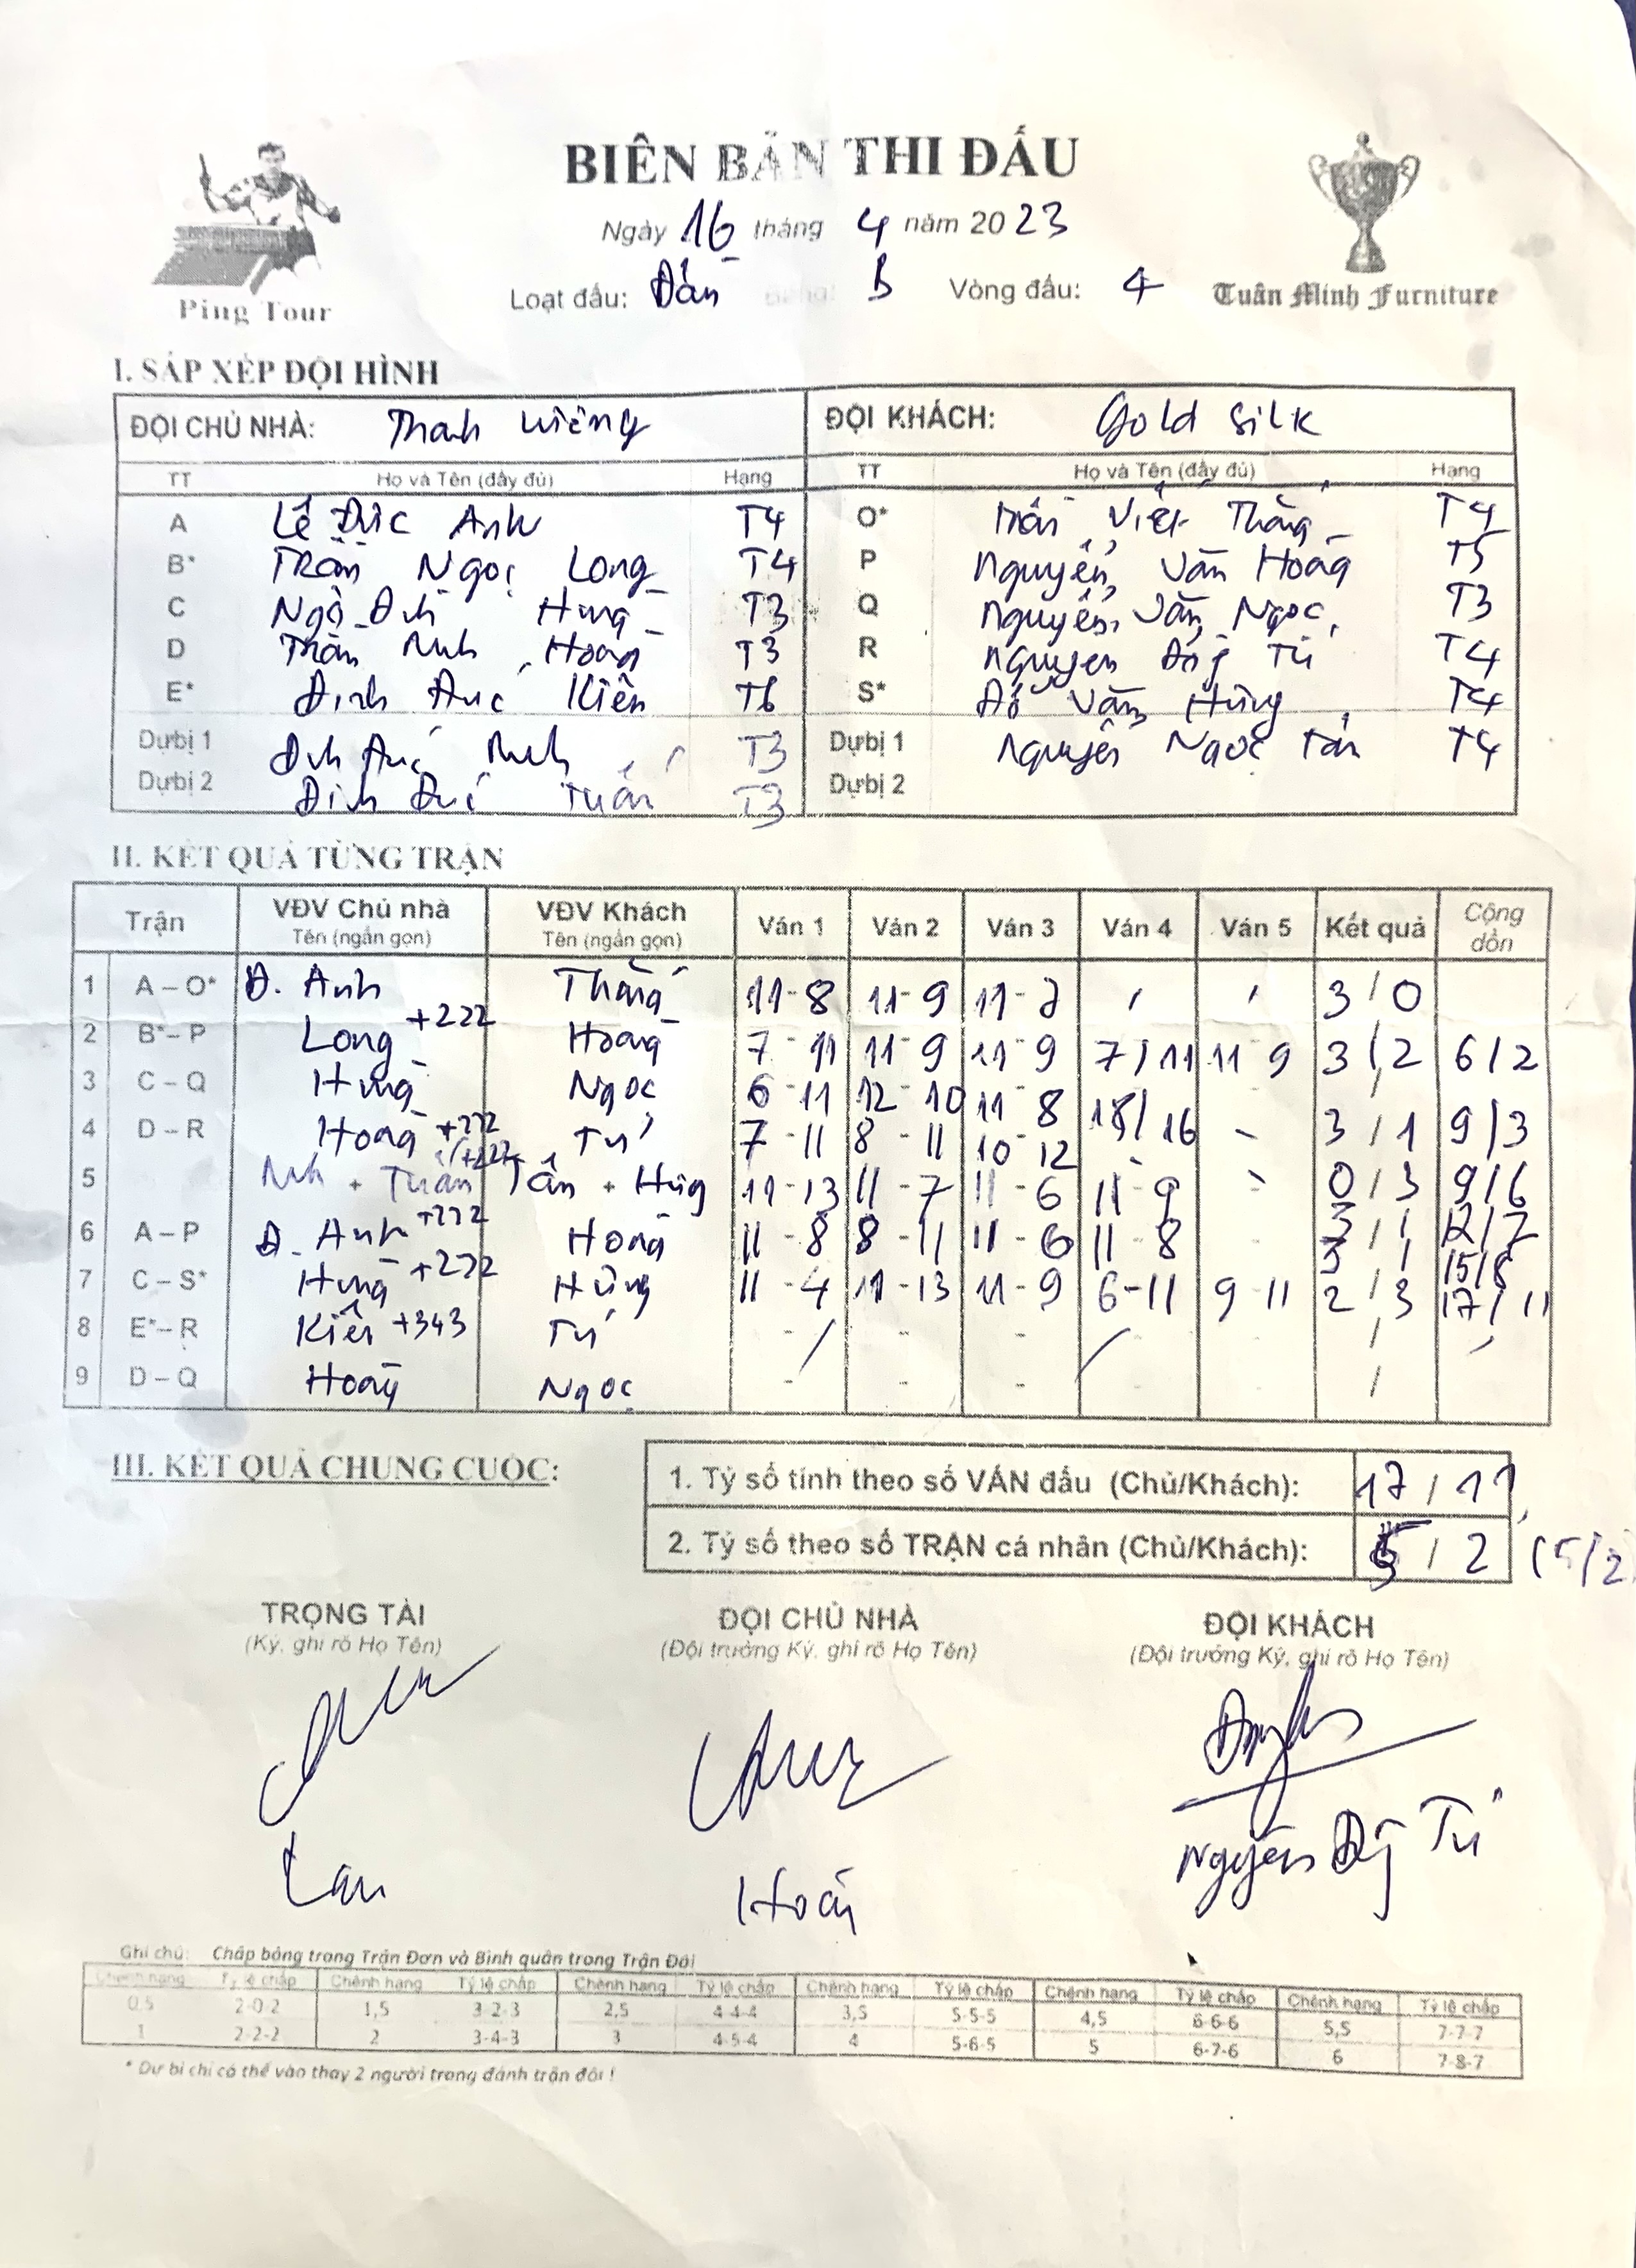 BIÊN BẢN THI ĐẤU
Ngày 16 tháng 4 năm 2023
Ping Tour
Loạt đấu: Bảng: B Vòng đấu: 4
Tuấn Minh Furniture
I. SẮP XẾP ĐỘI HÌNH
ĐỘI CHỦ NHÀ: ĐỘI KHÁCH: Gold Silk
TT Họ và Tên (đầy đủ) Hạng TT Họ và Tên (đầy đủ) Hạng
A Lê Đức Anh T4 O* Trần Viết Thắng T4
B* Trần Ngọc Long T4 P Nguyễn Văn Hoàng T5
C Ngô Hưng T3 Q Nguyễn Văn Ngọc T3
D Trần Minh Hoàng T3 R Nguyễn Tú T4
E* Đinh Đức Kiên T6 S* Đỗ Văn Hùng T4
Dự bị 1 Đinh Đức T3 Dự bị 1 Nguyễn Ngọc Tân T4
Dự bị 2 Đinh Đức Tuấn T3 Dự bị 2
II. KẾT QUẢ TỪNG TRẬN
Trận VĐV Chủ nhà VĐV Khách Ván 1 Ván 2 Ván 3 Ván 4 Ván 5 Kết quả Cộng dồn
Tên (ngắn gọn) Tên (ngắn gọn)
1 A – O* Đ. Anh Thắng 11-8 11-9 11-7 3/0
2 B* – P Long +222 Hoàng 7-11 11-9 11-9 7/11 11-9 3/2 6/2
3 C – Q Hưng Ngọc 6-11 12-10 11-8 18/16 - 3/1 9/3
4 D – R Hoàng +222 Tú 7-11 8-11 10-12 - 0/3 9/6
5 + Tuấn (+222 Tân + Hùng 11-13 11-7 11-6 11-9 - 3/1 12/7
6 A – P Đ. Anh +222 Hoàng 11-8 8-11 11-6 11-8 - 3/1 15/8
7 C – S* Hưng +222 Hùng 11-4 11-13 11-9 6-11 9-11 2/3 17/11
8 E* – R Kiên +343 Tú - - - - - /
9 D – Q Hoàng Ngọc - - - - - /
III. KẾT QUẢ CHUNG CUỘC:
1. Tỷ số tính theo số VÁN đấu (Chủ/Khách): 17/11
2. Tỷ số theo số TRẬN cá nhân (Chủ/Khách): 5/2 (5/2)
TRỌNG TÀI ĐỘI CHỦ NHÀ ĐỘI KHÁCH
(Ký, ghi rõ Họ Tên) (Đội trưởng Ký, ghi rõ Họ Tên) (Đội trưởng Ký, ghi rõ Họ Tên)
Nguyễn Tú
Ghi chú: Chấp bóng trong Trận Đơn và Bình quân trong Trận Đôi
Chênh hạng Tỷ lệ chấp Chênh hạng Tỷ lệ chấp Chênh hạng Tỷ lệ chấp Chênh hạng Tỷ lệ chấp Chênh hạng Tỷ lệ chấp Chênh hạng Tỷ lệ chấp
0,5 2-0-2 1,5 3-2-3 2,5 4-4-4 3,5 5-5-5 4,5 6-6-6 5,5 7-7-7
1 2-2-2 2 3-4-3 3 4-5-4 4 5-6-5 5 6-7-6 6 7-8-7
* Dự bị chỉ có thể vào thay 2 người trong đánh trận đôi !